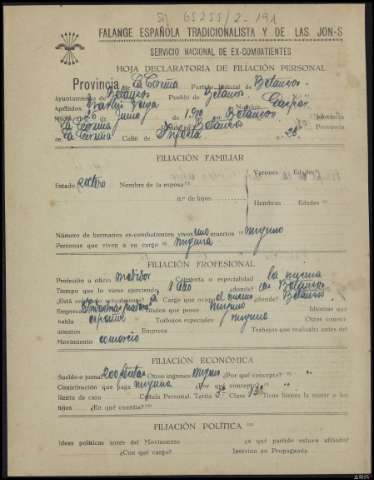 65255/2-191
FALANGE ESPAÑOLA TRADICIONALISTA Y DE LAS JON-S
SERVICIO NACIONAL DE EX-COMBATIENTES
HOJA DECLARATORIA DE FILIACIÓN PERSONAL
Provincia de La Coruña Partido Judicial de Betanzos
Ayuntamiento de Betanzos Pueblo de Betanzos
Apellidos Nombre Gaspar
26 Junio de 19 en Betanzos Provincia
La Coruña Betanzos
La Coruña Calle de nº 28
FILIACIÓN FAMILIAR
Varones Edades
Estado soltero Nombre de la esposa
nº de hijos Hembras Edades
Número de hermanos ex-combatientes vivos uno muertos ninguno
Personas que viven a su cargo ninguna
FILIACIÓN PROFESIONAL
Profesión u oficio Categoría o especialidad la misma
Tiempo que lo viene ejerciendo 1 año ¿dónde? en Betanzos
¿Está colocado actualmente? Cargo que ocupa el mismo ¿dónde? Betanzos
Empresa Títulos que posee ninguno Idiomas que
habla español Trabajos especiales ninguno Otros conoci-
mientos Empresa Trabajos que realizaba antes del
Movimiento
FILIACIÓN ECONÓMICA
Sueldo o jornal 200 pesetas Otros ingresos ninguno ¿Por qué concepto?
Contribución que paga ninguna ¿Por qué concepto?
Renta de casa Cédula Personal. Tarifa 3ª Clase 13ª Tiene bienes la mujer o los
hijos ¿En qué cuantía?
FILIACIÓN POLÍTICA
Ideas políticas antes del Movimiento ¿a qué partido estuvo afiliado?
¿Con qué cargo? Servicios en Propaganda